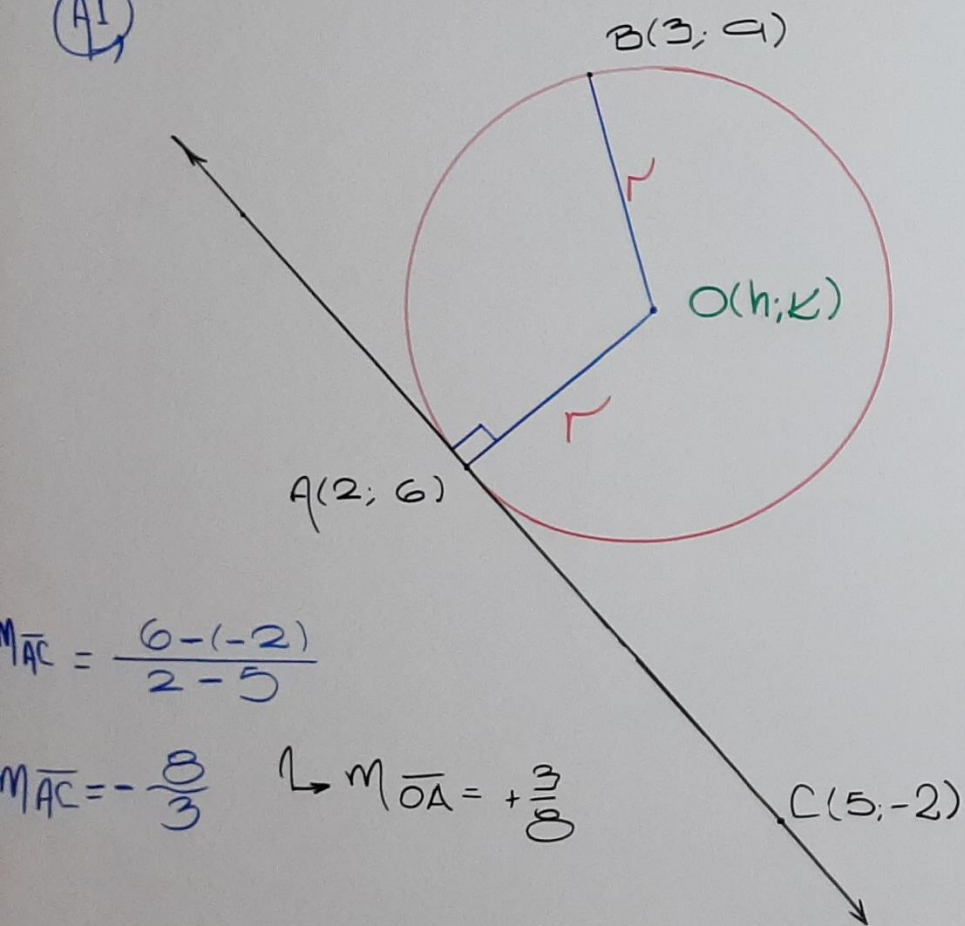 A1
B(3; 9)
r
O(h;K)
r
A(2; 6)
m AC = 6-(-2) / 2-5
m AC = - 8/3 ↳ m OA = + 3/8
C(5;-2)